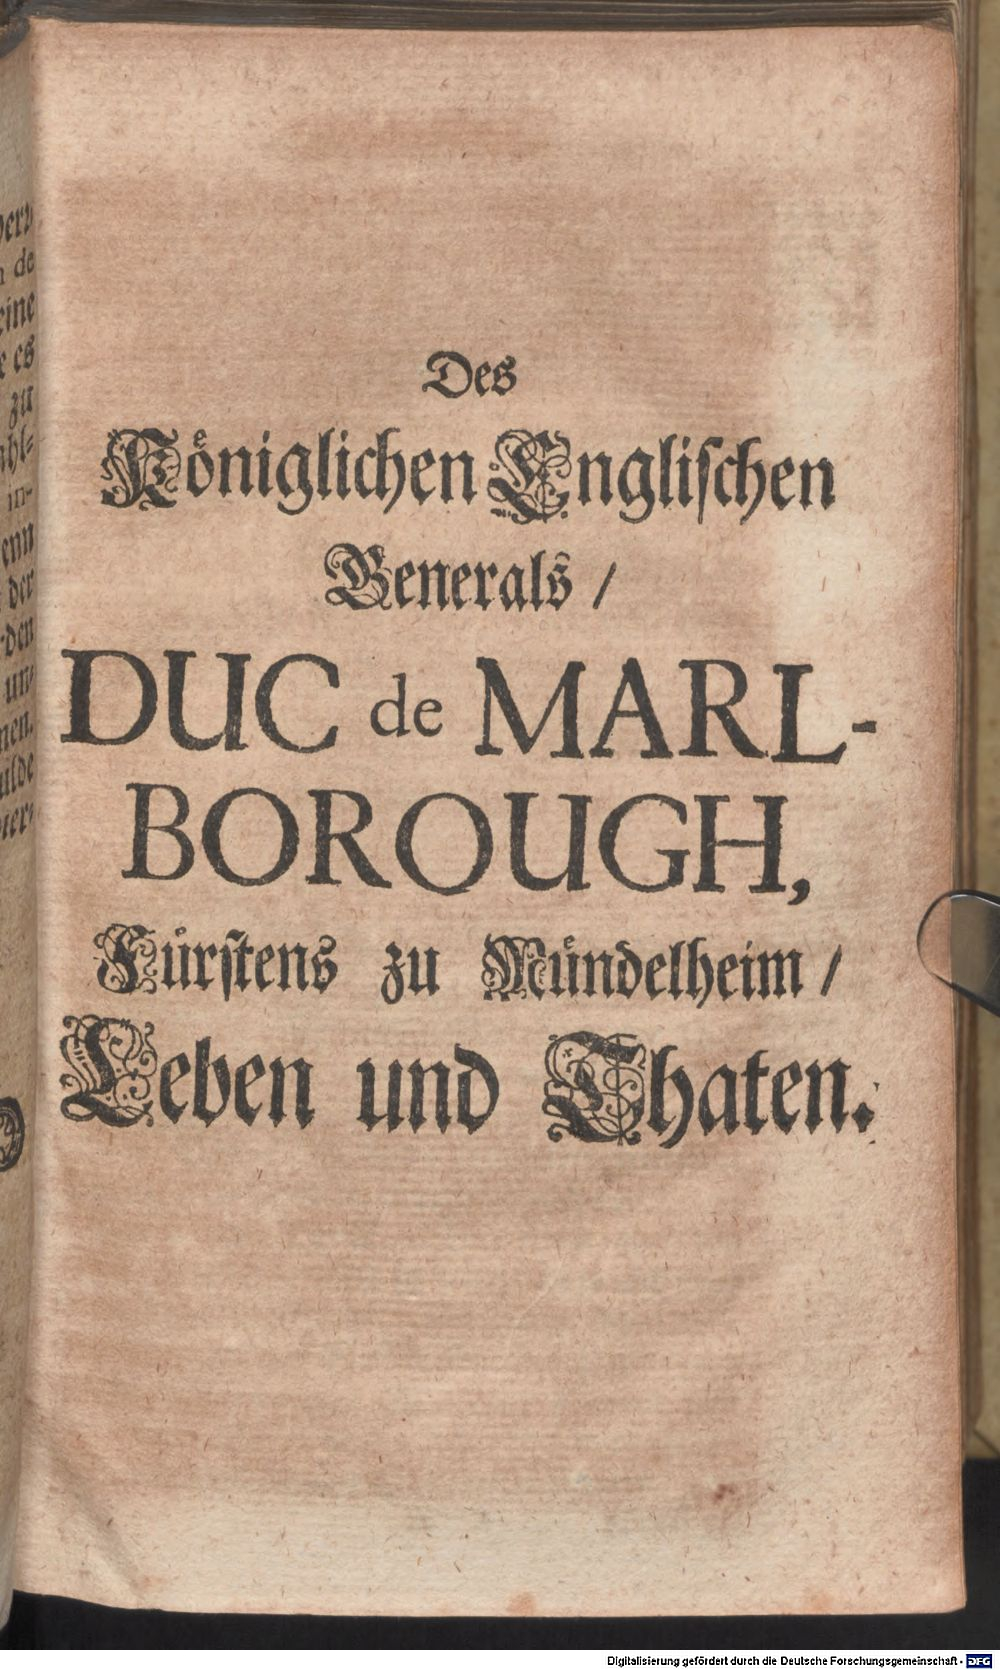 Des
Koͤniglichen Engliſchen
Generals /
DUC de MARL-
BOROUGH,
Fuͤrſtens zu Muͤndelheim /
Leben und Thaten.
n de
eine
e es
zu
in-
enn
der
un-
Digitalisierung gefördert durch die Deutsche Forschungsgemeinschaft - DFG